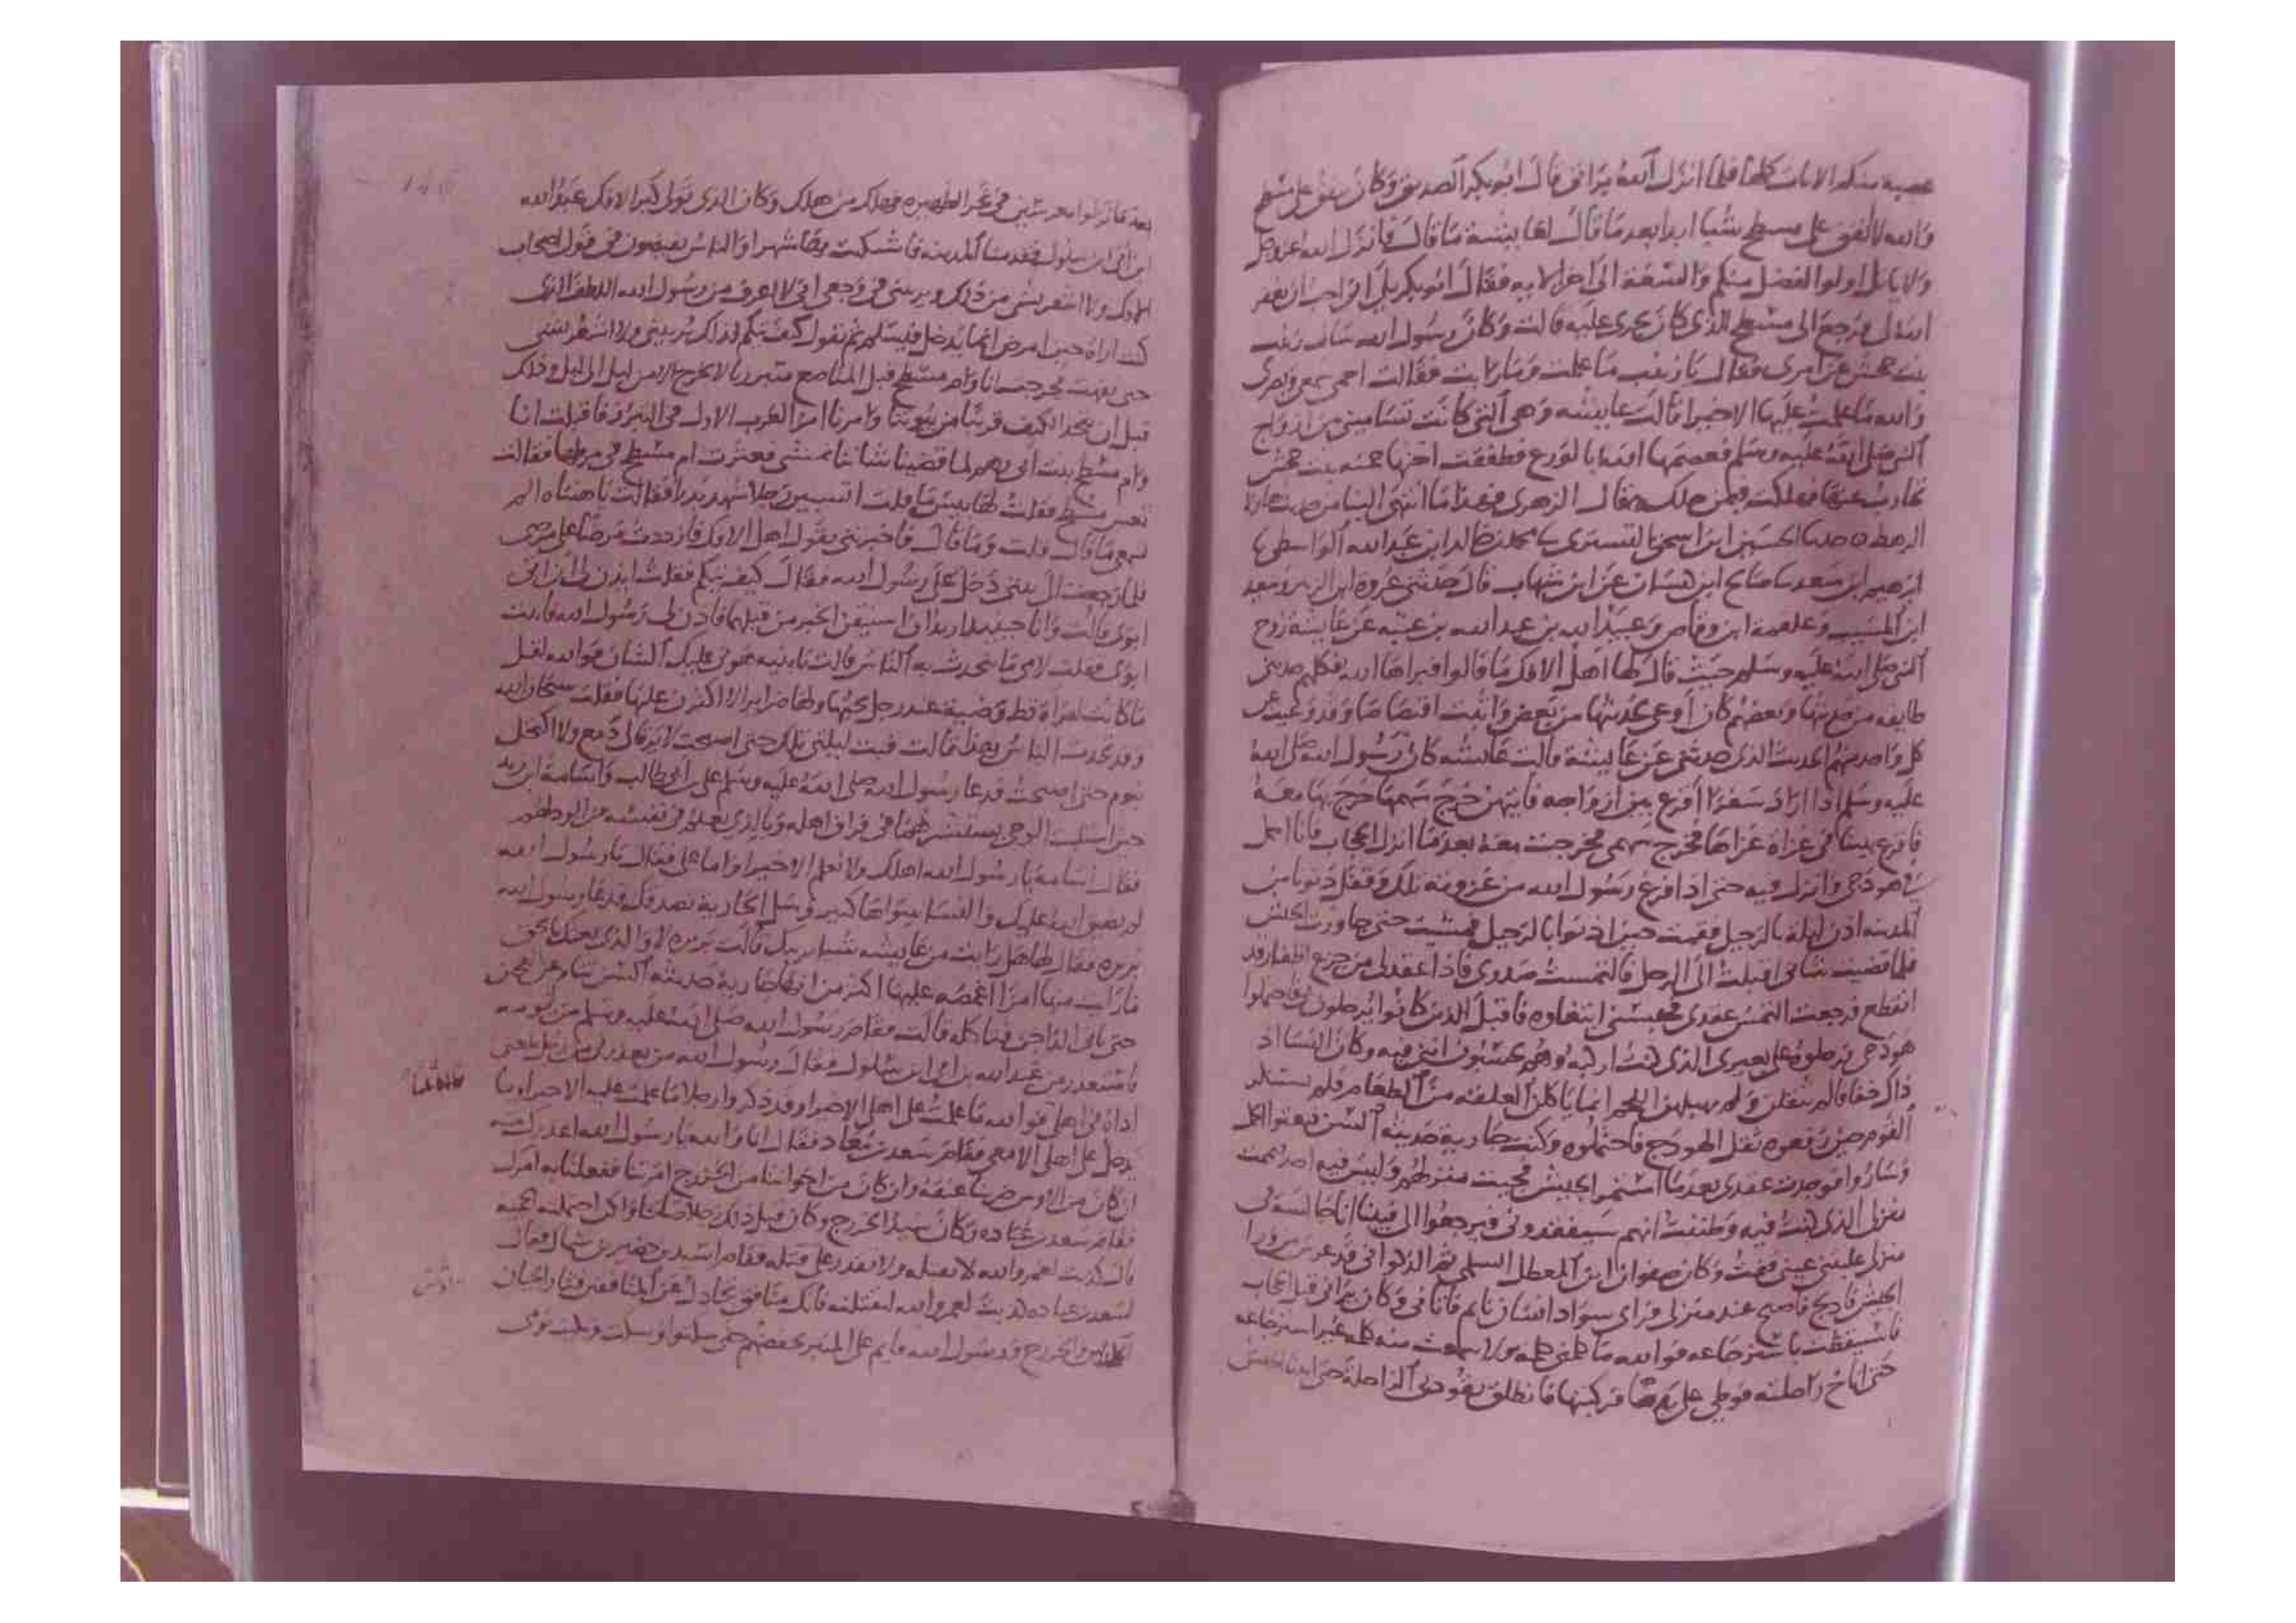 عصبة منكم الايات كلها فلما انزل الله براتى قال ابو بكر الصديق وكان ينفق على مسطح
والله لا انفق على مسطح شيا ابدا بعد ما قال لعايشة ما قال فانزل الله عز وجل
ولا ياتل اولوا الفضل منكم والسعة الى اخر الايه فقال ابو بكر بلى انى احب ان يغفر
الله لى فرجع الى مسطح الذى كان يجرى عليه قالت وكان رسول الله سال زينب
بنت جحش عن امرى فقال يا زينب ما علمت وما رايت فقالت احمى سمعى وبصرى
والله ما علمت عليها الا خيرا قالت عايشه وهى التى كانت تسامينى من ازواج
النبى صلى الله عليه وسلم فعصمها الله بالورع فطفقت اختها حمنه بنت جحش
تحارب عنها فهلكت فيمن هلك قال الزهرى فهذا ما انتهى الينا من حديث هاولا
الرهط حدثنا الحسين ابن اسحق التسترى محمد بن خالد ابن عبد الله الواسطى
ابرهيم ابن سعد صالح ابن كيسان عن ابن شهاب قال حدثنى عروة ابن الزبير وسعيد
ابن المسيب وعلقمة ابن وقاص وعبيد الله بن عبد الله بن عتبه عن عايشة زوج
النبى صلى الله عليه وسلم حيث قال لها اهل الافك ما قالوا فبراها الله فكلهم حدثنى
طايفه من حديثها وبعضهم كان اوعى لحديثها من بعض واثبت اقتصاصا وقد وعيت عن
كل واحد منهم الحديث الذى حدثنى عن عايشة قالت عايشه كان رسول الله صلى الله
عليه وسلم اذا اراد سفرا اقرع بين ازواجه فايتهن خرج سهمها خرج بها معه
فاقرع بيننا فى غزاة غزاها فخرج سهمى فخرجت معه بعد ما انزل الحجاب فانا احمل
فى هودجى وانزل فيه حتى اذا فرغ رسول الله من غزوته تلك وقفل دنونا من
المدينه اذن ليلة بالرحيل فقمت حين اذنوا بالرحيل فمشيت حتى جاوزت الجيش
فلما قضيت شانى اقبلت الى الرحل فالتمست صدرى فاذا عقد لى من جزع اظفار قد
انقطع فرجعت التمس عقدى فحبسنى ابتغاوه فاقبل الذين كانوا يرحلون بى فاحتملوا
هودجى فرحلوه على بعيرى الذى كنت اركبه وهم يحسبون انى فيه وكان النسا اذ
ذاك خفافا لم يثقلن ولم يهبلهن اللحم انما ياكلن العلقه من الطعام فلم يستنكر
القوم حين رفعوه ثقل الهودج فاحتملوه وكنت جارية حديثه السن فبعثوا الجمل
وساروا فوجدت عقدى بعد ما استمر الجيش فجيت منزلهم وليس فيه احد فاممت
منزلى الذى كنت فيه وظننت انهم سيفقدونى فيرجعوا الى فبينا انا جالسة فى
منزلى غلبتنى عينى فنمت وكان صفوان ابن المعطل السلمى ثم الذكوانى قد عرس من ورا
الجيش فادلج فاصبح عند منزلى فراى سواد انسان نايم فاتانى وكان يرانى قبل الحجاب
فاستيقظت باسترجاعه فوالله ما كلمنى كلمه ولا سمعت منه كلمة غير استرجاعه
حتى اناخ راحلته فوطى على يدها فركبتها فانطلق يقود بى الراحلة حتى اتينا الجيش
بعد ما نزلوا موغرين فى نحر الظهيره فهلك من هلك وكان الذى تولى كبر الافك عبد الله
ابن ابى ابن سلول فقدمنا المدينه فاشتكيت بها شهرا والناس يفيضون فى قول اصحاب
الافك ولا اشعر بشى من ذلك ويريبنى فى وجعى انى لا اعرف من رسول الله اللطف الذى
كنت اراه حين امرض انما يدخل فيسلم ثم يقول كيف تيكم فذاك يريبنى ولا اشعر بشى
حتى نقهت فخرجت انا وام مسطح قبل المناصع متبرزنا لا نخرج الا من ليل الى ليل وذلك
قبل ان نتخذ الكنف قريبا من بيوتنا وامرنا امر العرب الاول فى التبرز فاقبلت انا
وام مسطح بنت ابى رهم لما قضينا شاننا نمشى فعثرت ام مسطح فى مرطها فقالت
تعس مسطح فقلت لها بيس ما قلت اتسبين رجلا شهد بدرا فقالت يا هنتاه الم
تسمعى ما قال قلت وما قال فاخبرتنى بقول اهل الافك فازددت مرضا على مرضى
فلما رجعت الى بيتى دخل على رسول الله فقال كيف تيكم فقلت ايذن لى ان اتى
ابوى قالت وانا حينيذ اريد ان استيقن الخبر من قبلهما فاذن لى رسول الله فاتيت
ابوى فقلت لامى ما يتحدث به الناس قالت يا بنيه هونى عليك الشان فوالله لقل
ما كانت امراة قط وضيية عند رجل يحبها ولها ضراير الا اكثرن عليها فقلت سبحان الله
وقد تحدث الناس بهذا قالت فبت ليلتى تلك حتى اصبحت لا يرقا لى دمع ولا اكتحل
بنوم حتى اصبحت فدعا رسول الله صلى الله عليه وسلم على بن ابى طالب واسامة ابن زيد
حين استلبث الوحى يستشيرهما فى فراق اهله وبالذى يعلم فى نفسه من الود لهم
فقال اسامة يا رسول الله اهلك ولا نعلم الا خيرا واما على فقال يا رسول الله
لم يضيق الله عليك والنسا سواها كثير وسل الجارية تصدقك فدعا رسول الله
بريره فقال لها هل رايت من عايشه شيا يريبك قالت بريره لا والذى بعثك بالحق
ما رايت منها امرا اغمصه عليها اكثر من انها جارية حديثه السن تنام عن العجين
حتى ياتى الداجن فتاكله قالت فقام رسول الله صلى الله عليه وسلم من يومه
فاستعذر من عبد الله بن ابى ابن سلول فقال رسول الله من يعذرنى من رجل بلغنى
اذاه فى اهلى فوالله ما علمت على اهلى الا خيرا وقد ذكروا رجلا ما علمت عليه الا خيرا وما
يدخل على اهلى الا معى فقام سعد بن معاذ فقال انا والله يا رسول الله اعذرك منه
ان كان من الاوس ضربنا عنقه وان كان من اخواننا من الخزرج امرتنا ففعلنا به امرك
فقام سعد بن عباده وكان سيد الخزرج وكان قبل ذلك رجلا صالحا ولكن احتملته الحمية
قال كذبت لعمر والله لا تقتله ولا تقدر على قتله فقام اسيد بن حضير بن سماك فقال
لسعد بن عباده كذبت لعمر والله لنقتلنه فانك منافق تجادل عن المنافقين فثار الحيان
الاوس والخزرج ورسول الله قايم على المنبر يخفضهم حتى سكتوا وسكت وبكيت يومى